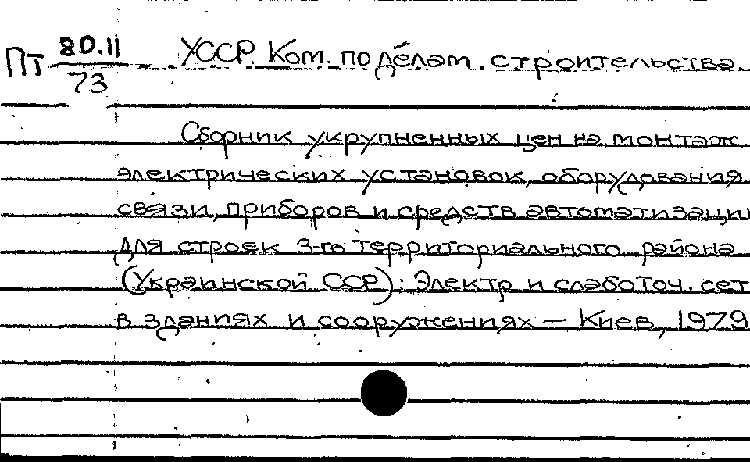 Пт 80.11 УССР. Ком. по делам. строительства.
73
Сборник укрупненных цен на монтаж
электрических установок, оборудования
связи, приборов и средств автоматизации
для строек 3-го территориального района
(Украинской ССР): Электр и слаботоч. сет
в зданиях и сооружениях — Киев, 1979